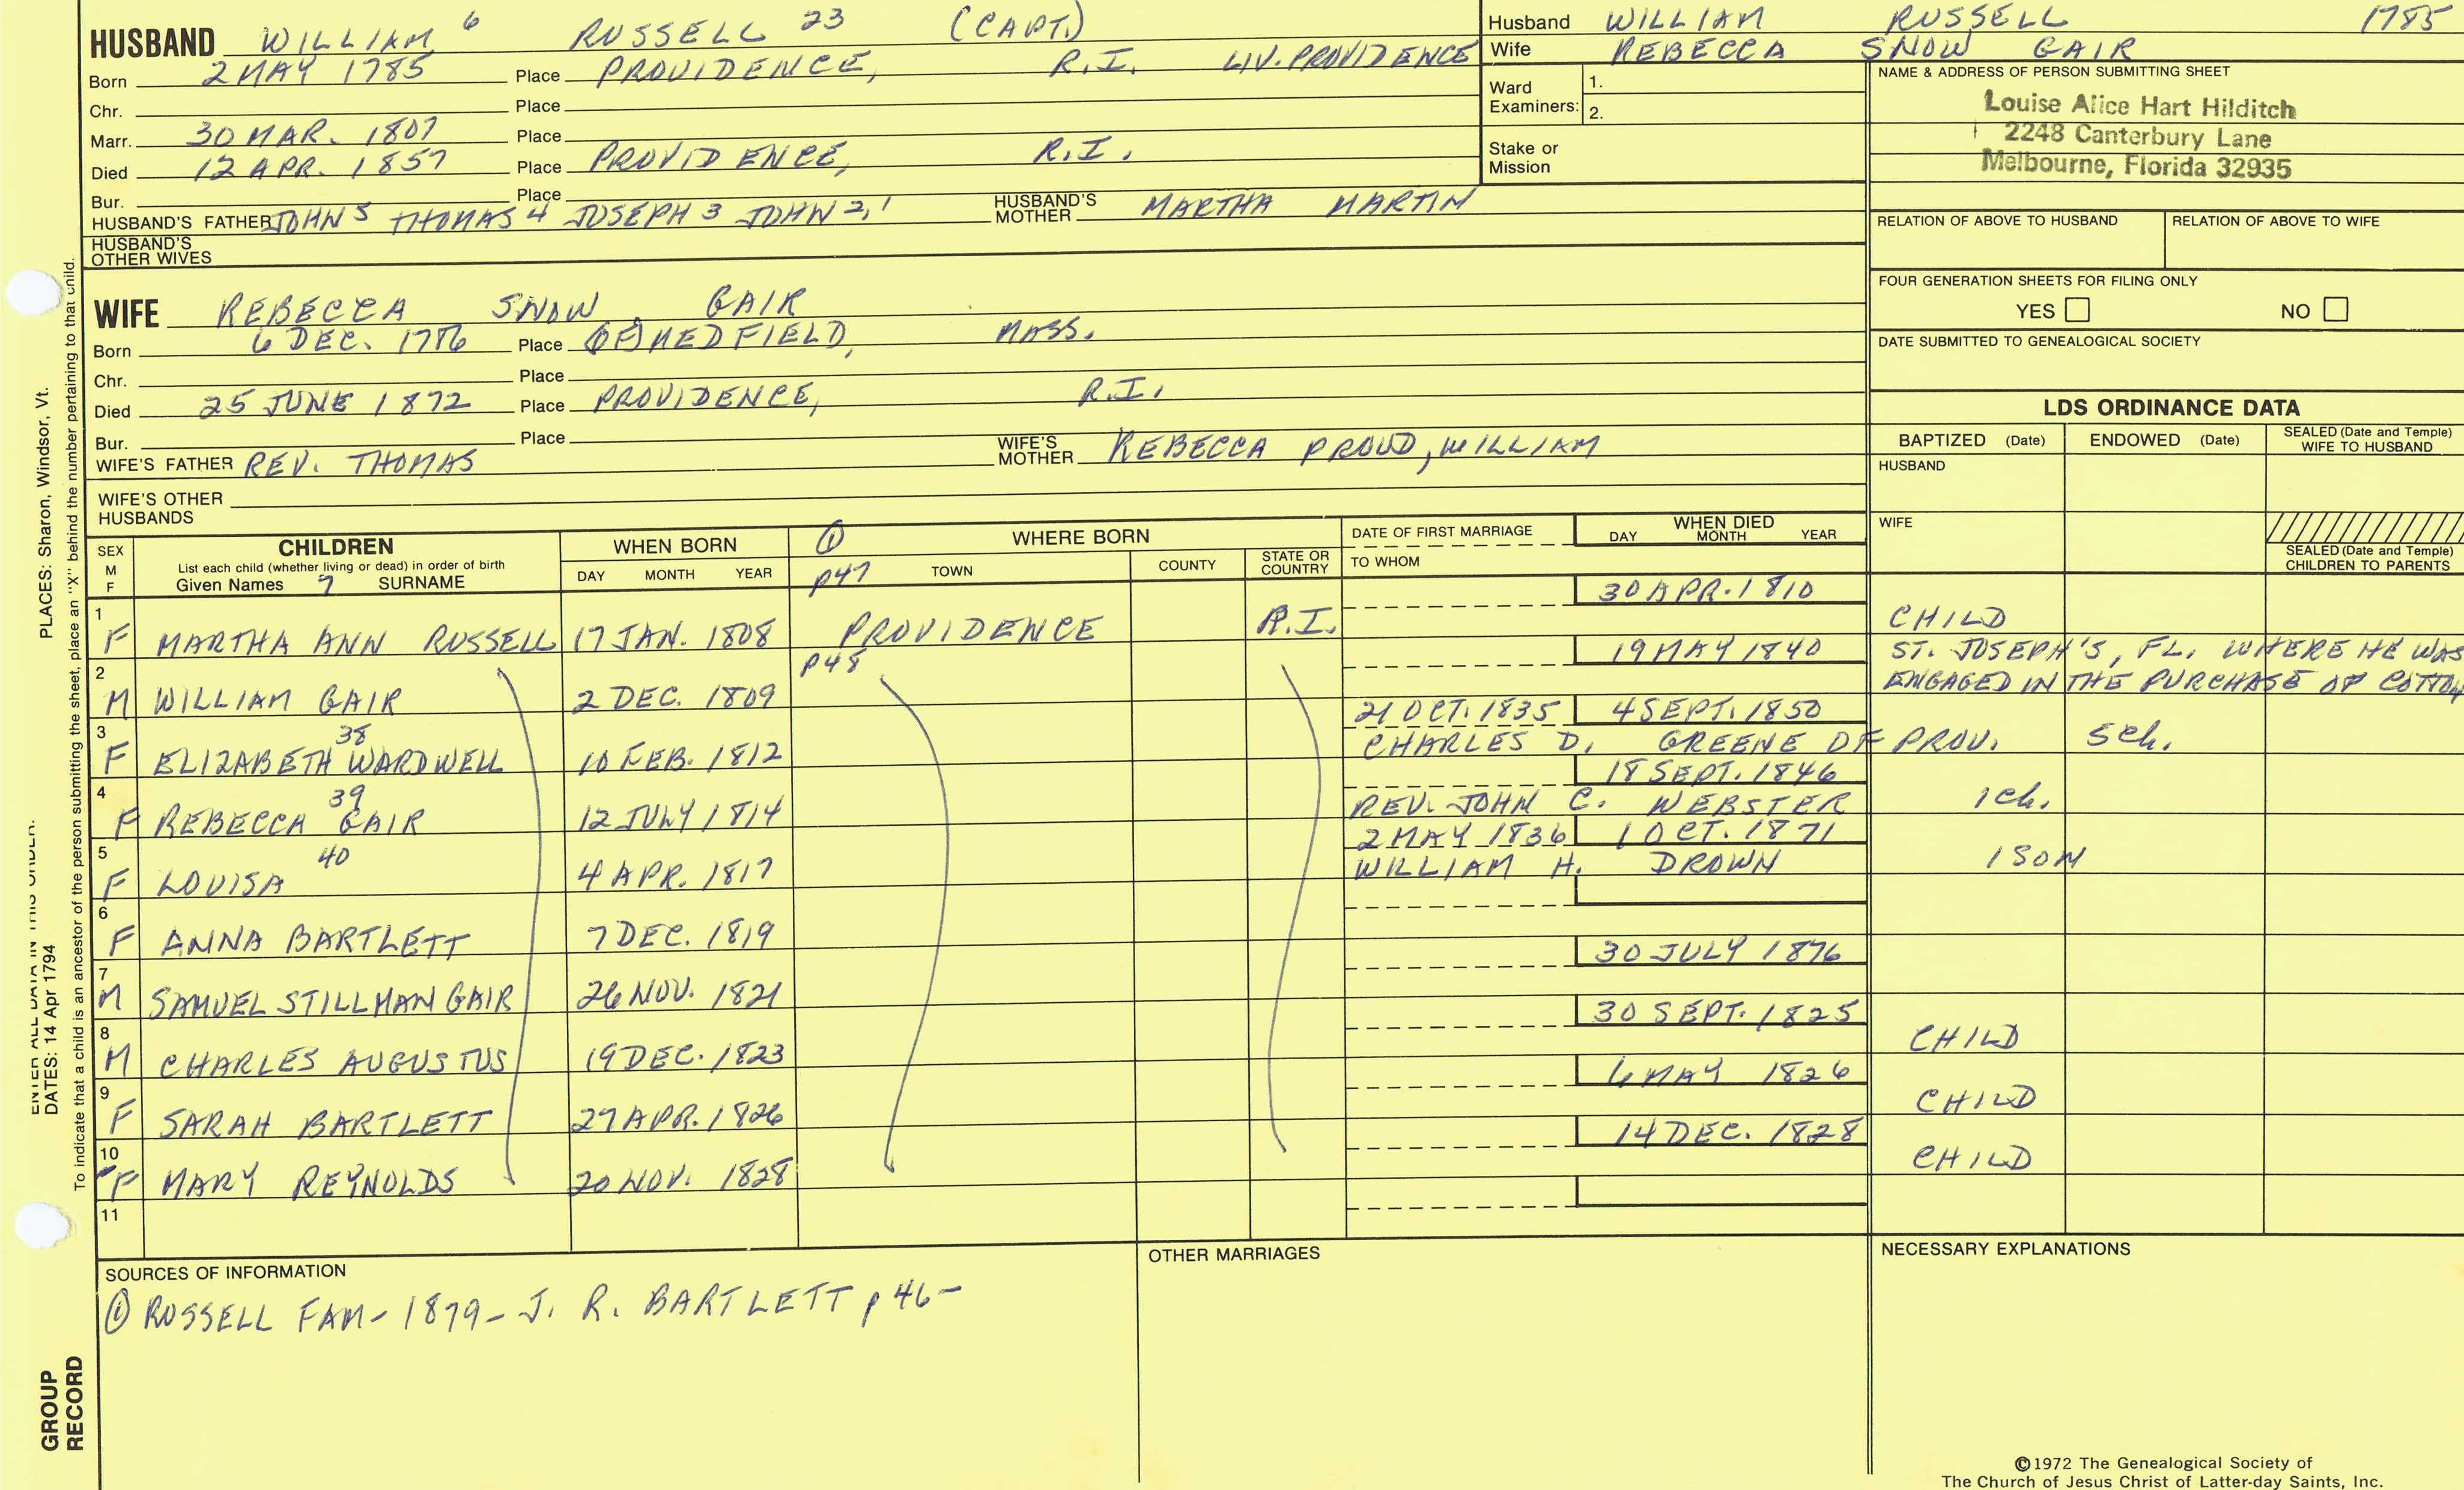 HUSBAND WILLIAM 6 RUSSELL 23 (CAPT.)
Born 2 MAY 1785 Place PROVIDENCE, R.I. LIV. PROVIDENCE
Chr. Place
Marr. 30 MAR. 1807 Place
Died 12 APR. 1857 Place PROVIDENCE, R.I.
Bur. Place
HUSBAND'S FATHER JOHN 5 THOMAS 4 JOSEPH 3 JOHN 2,1 HUSBAND'S MOTHER MARTHA MARTIN
HUSBAND'S OTHER WIVES
Husband WILLIAM RUSSELL 1785
Wife REBECCA SNOW GAIR
Ward Examiners: 1.
2.
Stake or Mission
NAME & ADDRESS OF PERSON SUBMITTING SHEET
Louise Alice Hart Hilditch
2248 Canterbury Lane
Melbourne, Florida 32935
RELATION OF ABOVE TO HUSBAND RELATION OF ABOVE TO WIFE
FOUR GENERATION SHEETS FOR FILING ONLY
YES NO
DATE SUBMITTED TO GENEALOGICAL SOCIETY
WIFE REBECCA SNOW GAIR
Born 6 DEC. 1786 Place MEDFIELD, MASS.
Chr. Place
Died 25 JUNE 1872 Place PROVIDENCE, R.I.
Bur. Place
WIFE'S FATHER REV. THOMAS WIFE'S MOTHER REBECCA PROUD, WILLIAM
WIFE'S OTHER HUSBANDS
LDS ORDINANCE DATA
BAPTIZED (Date) ENDOWED (Date) SEALED (Date and Temple) WIFE TO HUSBAND
HUSBAND
WIFE
SEALED (Date and Temple) CHILDREN TO PARENTS
SEX M F CHILDREN WHEN BORN ① WHERE BORN DATE OF FIRST MARRIAGE WHEN DIED
List each child (whether living or dead) in order of birth
Given Names 7 SURNAME DAY MONTH YEAR p47 TOWN COUNTY STATE OR COUNTRY TO WHOM DAY MONTH YEAR
30 APR. 1810
1 F MARTHA ANN RUSSELL 17 JAN. 1808 PROVIDENCE R.I. CHILD
p48 19 MAY 1840 ST. JOSEPH'S, FL. WHERE HE WAS
2 M WILLIAM GAIR 2 DEC. 1809 ENGAGED IN THE PURCHASE OF COTTON
21 OCT. 1835 4 SEPT. 1850
3 F ELIZABETH WARDWELL 38 10 FEB. 1812 CHARLES D. GREENE OF PROV. 5 ch.
18 SEPT. 1846
4 F REBECCA GAIR 39 12 JULY 1814 REV. JOHN C. WEBSTER 1 ch.
2 MAY 1836 1 OCT. 1871
5 F LOUISA 40 4 APR. 1817 WILLIAM H. DROWN 1 SON
6 F ANNA BARTLETT 7 DEC. 1819
30 JULY 1876
7 M SAMUEL STILLMAN GAIR 26 NOV. 1821
30 SEPT. 1825
8 M CHARLES AUGUSTUS 19 DEC. 1823 CHILD
6 MAY 1826
9 F SARAH BARTLETT 27 APR. 1826 CHILD
14 DEC. 1828
10 F MARY REYNOLDS 20 NOV. 1828 CHILD
11
SOURCES OF INFORMATION
① RUSSELL FAM - 1879 - J. R. BARTLETT p 46 -
OTHER MARRIAGES
NECESSARY EXPLANATIONS
©1972 The Genealogical Society of
The Church of Jesus Christ of Latter-day Saints, Inc.
PLACES: Sharon, Windsor, Vt.
DATES: 14 Apr 1794
To indicate that a child is an ancestor of the person submitting the sheet, place an "X" behind the number pertaining to that child.
GROUP
RECORD